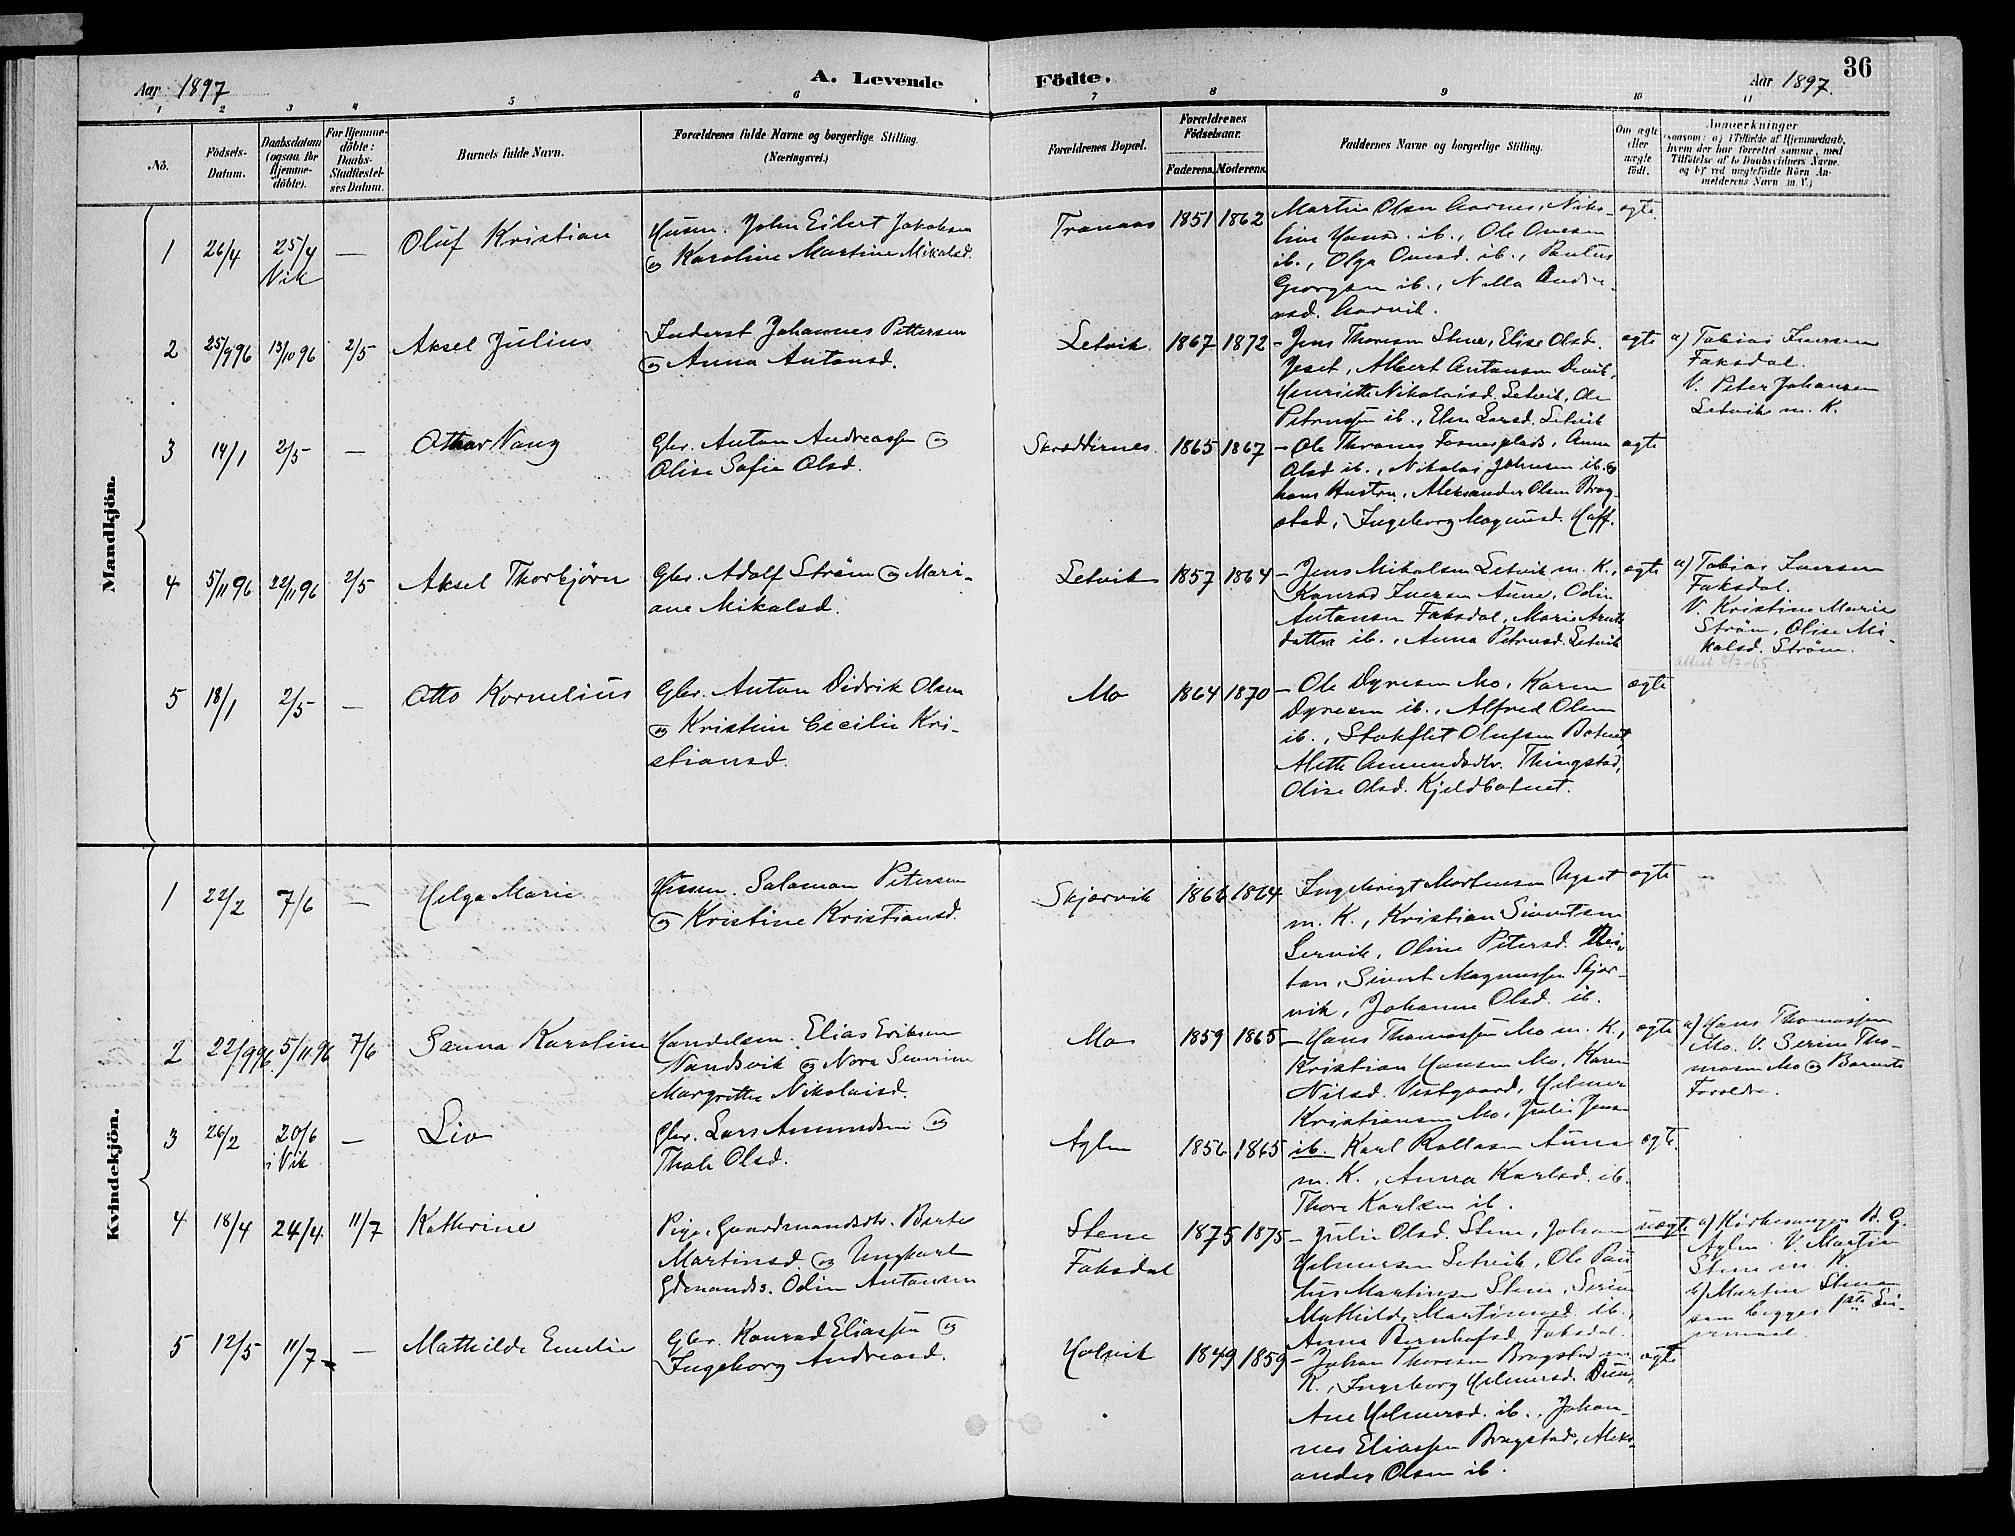 36
Aar 1897
A. Levende
Födte.
Aar 1897.
1 2 3 4 5 6 7 8 9 10 11
No.
Födsels-
Datum.
Daabsdatum
(ogsaa for
Hjemme-
döbte).
For Hjemme-
döbte:
Daabs-
Stadfæstel-
ses Datum.
Barnets fulde Navn.
Forældrenes fulde Navne og borgerlige Stilling.
(Næringsvei.)
Forældrenes Bopæl.
Forældrenes
Födselsaar.
Faderens. Moderens.
Faddernes Navne og borgerlig Stilling.
Om ægte
eller
uægte
födt.
Anmærkninger
(saasom: a) i Tilfælde af Hjemmedaab,
hvem der har forrettet samme, med
Tilföielse af to Daabsvidners Navne,
og b) ved uægtefödte Börn An-
melderens Navn m. V.)
Mandkjön.
1
26/4
25/4
Vik
—
Oluf Kristian
Husm. John Eilert Jakobsen
og Karoline Martine Mikalsd.
Tranaas
1851
1862
Martin Olsen Aarnes, Niko-
line Hansd. ib., Ole Ovesen
ib., Olga Ovesd. ib., Paulus
Georgsen ib., Nella Andre-
asd. Aarvik.
ægte
2
25/9 96
13/10 96
2/5
Aksel Julius
Inderst Johannes Pettersen
og Anna Antonsd.
Letvik
1867
1872
- Jens Thoresen Stene, Elise Olsd.
Jeset, Albert Antonsen Devik,
Henriette Nikolaisd. Letvik, Ole
Petersen ib., Elen Larsd. Letvik
ægte
a) Tobias Iversen
Faksdal.
V. Peter Johansen
Letvik m. K.
3
14/1
2/5
—
Othar Vang
Gbr. Anton Andreassen og
Olise Sofie Olsd.
Skreddernes.
1865
1867
- Ole Thoranes Fosnesplads, Anne
Olsd ib., Nikolai Johnsen ib. og
hans Hustru, Aleksander Olsen Brag-
stad, Ingeborg Magnusd. Haff.
ægte
4
5/11 96
22/11 96
2/5
Aksel Thorbjörn
Gbr. Adolf Ström og Mari-
ane Mikalsd.
Letvik
1857
1864
- Jens Mikalsen Letvik m. K.,
Konrad Iversen Aune, Odin
Antonsen Faksdal, Marie Arnts
datter ib., Anna Petersd. Letvik
ægte
a) Tobias Iversen
Faksdal.
V. Kristine Marie
Ström, Olise Mi-
kalsd. Ström.
Attest 2/7-65
5
18/1
2/5
—
Otto Kornelius
Gbr. Anton Didrik Olsen
og Kristine Cecilie Kri-
stiansd.
Mo
1864
1870
- Ole Dyresen Mo, Karen
Dyresen ib., Alfred Olsen
ib., Stokflet Olufsen Botnet,
Mette Amundsdtr. Thingstad,
Olise Olsd. Kjeldbotnet.
ægte
Kvindekjön.
1
22/2
7/6
—
Helga Marie
Husm. Salamon Petersen
og Kristine Kristiansd.
Skjærvik
1866
1864
Ingebrigt Mortensen Nyset
m. K., Kristian Sivertsen
Servik, Oline Petersd.
Sivert Magnussen Skjær-
vik, Johanne Olsd. ib.
ægte
2
22/9 96
5/11 96
7/6
Sanna Karoline
Handelsm. Elias Eriksen
Vandsvik og Nora Severine
Margrethe Nikolaisd.
Mo
1859
1865
- Hans Thomassen Mo m. K.,
Kristian Hansen Mo, Karen
Nilsd. Vestgaard, Helmer
Kristiansen Mo, Julie Jens
ib.
ægte
a) Hans Thomassen
Mo. V. Serine Tho-
masen Mo og Barnets
Forældre.
3
26/2
20/6
i Vik
—
Liv
Gbr. Lars Amundsen og
Thale Olsd.
Aglen
1856
1865
Karl Rollasen Aune
m. K., Anna Karlsd. ib.
Thore Karlsen ib.
ægte
4
18/4
24/4
11/7
Kathrine
Pige, Gaardmandsdtr. Berte
Martinsd. og Ungkarl
Gdmands. Odin Antonsen
Stene
Faksdal
1875
1875
- Julie Olsd. Stene, Johan
Helmersen Letvik, Ole Pau-
lus Martinsen Stene, Serine
Mathilde Martinusd. ib.,
Anna Bernhofsd. Faksdal.
uægte
a) Kirkesanger B. G.
Aglen. V. Martin
Stene m. K.
b) Martin Stene
som begges 1ste Lei-
ermaal.
5
12/5
11/7
—
Mathilde Emelie
Gbr. Konrad Eliassen og
Ingeborg Andreasd.
Holvik
1849
1859
- Johan Thoresen Bragstad m
K., Ingeborg Helmersd. Duun,
Ane Helmersd. ib., Johan-
nes Eliassen Bragstad, Aleks-
ander Olsen ib.
ægte